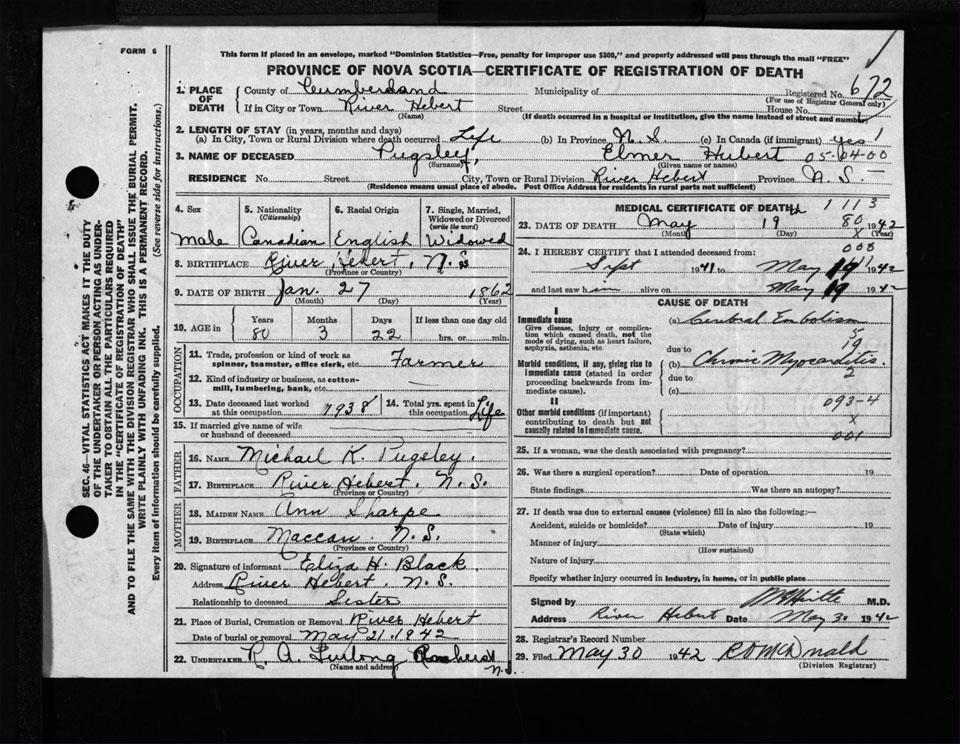 FORM 6
This form if placed in an envelope, marked "Dominion Statistics—Free, penalty for improper use $300," and properly addressed will pass through the mail "FREE"
PROVINCE OF NOVA SCOTIA—CERTIFICATE OF REGISTRATION OF DEATH
SEC. 46—VITAL STATISTICS ACT MAKES IT THE DUTY
OF THE UNDERTAKER OR PERSON ACTING AS UNDER-
TAKER TO OBTAIN ALL THE PARTICULARS REQUIRED
IN THE "CERTIFICATE OF REGISTRATION OF DEATH"
AND TO FILE THE SAME WITH THE DIVISION REGISTRAR WHO SHALL ISSUE THE BURIAL PERMIT.
WRITE PLAINLY WITH UNFADING INK. THIS IS A PERMANENT RECORD.
Every item of information should be carefully supplied. (See reverse side for instructions.)
1. PLACE OF DEATH County of Cumberland Municipality of Registered No. 672
(For use of Registrar General only)
If in City or Town River Hebert Street House No.
(Name) (If death occurred in a hospital or institution, give the name instead of street and number)
2. LENGTH OF STAY (in years, months and days)
(a) In City, Town or Rural Division where death occurred Life (b) In Province N. S. (c) In Canada (if immigrant) yes 1
3. NAME OF DECEASED Pugsley, Elmer Hubert 05-04-00
(Surname) (Given name or names)
RESIDENCE No. Street City, Town or Rural Division River Hebert Province N. S.
(Residence means usual place of abode. Post Office Address for residents in rural parts not sufficient)
4. Sex 5. Nationality (Citizenship) 6. Racial Origin 7. Single, Married, Widowed or Divorced (write the word)
Male Canadian English Widowed
8. BIRTHPLACE River Hebert, N. S
(Province or Country)
9. DATE OF BIRTH Jan. 27 1862
(Month) (Day) (Year)
10. AGE in Years Months Days If less than one day old
80 3 22 hrs. or min.
OCCUPATION
11. Trade, profession or kind of work as spinner, teamster, office clerk, etc. Farmer
12. Kind of industry or business, as cotton-mill, lumbering, bank, etc. —
13. Date deceased last worked at this occupation 1938 14. Total yrs. spent in this occupation Life
15. If married give name of wife or husband of deceased
FATHER
16. NAME Michael K. Pugsley.
17. BIRTHPLACE River Hebert, N. S.
(Province or Country)
MOTHER
18. MAIDEN NAME Ann Sharpe
19. BIRTHPLACE Maccan. N. S.
(Province or Country)
20. Signature of informant Eliza H. Black,
Address River Hebert, N. S.
Relationship to deceased Sister
21. Place of Burial, Cremation or Removal River Hebert
Date of burial or removal May 21, 1942
22. UNDERTAKER R. A. Furlong Amherst N.S.
(Name and address)
MEDICAL CERTIFICATE OF DEATH 1 113
23. DATE OF DEATH May 19th 80 1942
(Month) (Day) X (Year)
24. I HEREBY CERTIFY that I attended deceased from: 008
Sept 1941 to May 19 1942
and last saw him alive on May 19 1942
CAUSE OF DEATH
I
Immediate cause (a) Cerebral Embolism
Give disease, injury or complication which caused death, not the mode of dying, such as heart failure, asphyxia, asthenia, etc.
5
19
due to
Morbid conditions, if any, giving rise to immediate cause (stated in order proceeding backwards from immediate cause). (b) Chronic Myocarditis.
due to 2
(c)
093-4
II
Other morbid conditions (if important) contributing to death but not causally related to immediate cause. X
001
25. If a woman, was the death associated with pregnancy?
26. Was there a surgical operation? Date of operation 19
State findings Was there an autopsy?
27. If death was due to external causes (violence) fill in also the following:—
Accident, suicide or homicide? Date of injury 19
(State which)
Manner of injury
(How sustained)
Nature of injury
Specify whether injury occurred in industry, in home, or in public place
Signed by M.D.
Address River Hebert Date May 30 1942
28. Registrar's Record Number
29. Filed May 30 1942 R D McDonald
(Division Registrar)